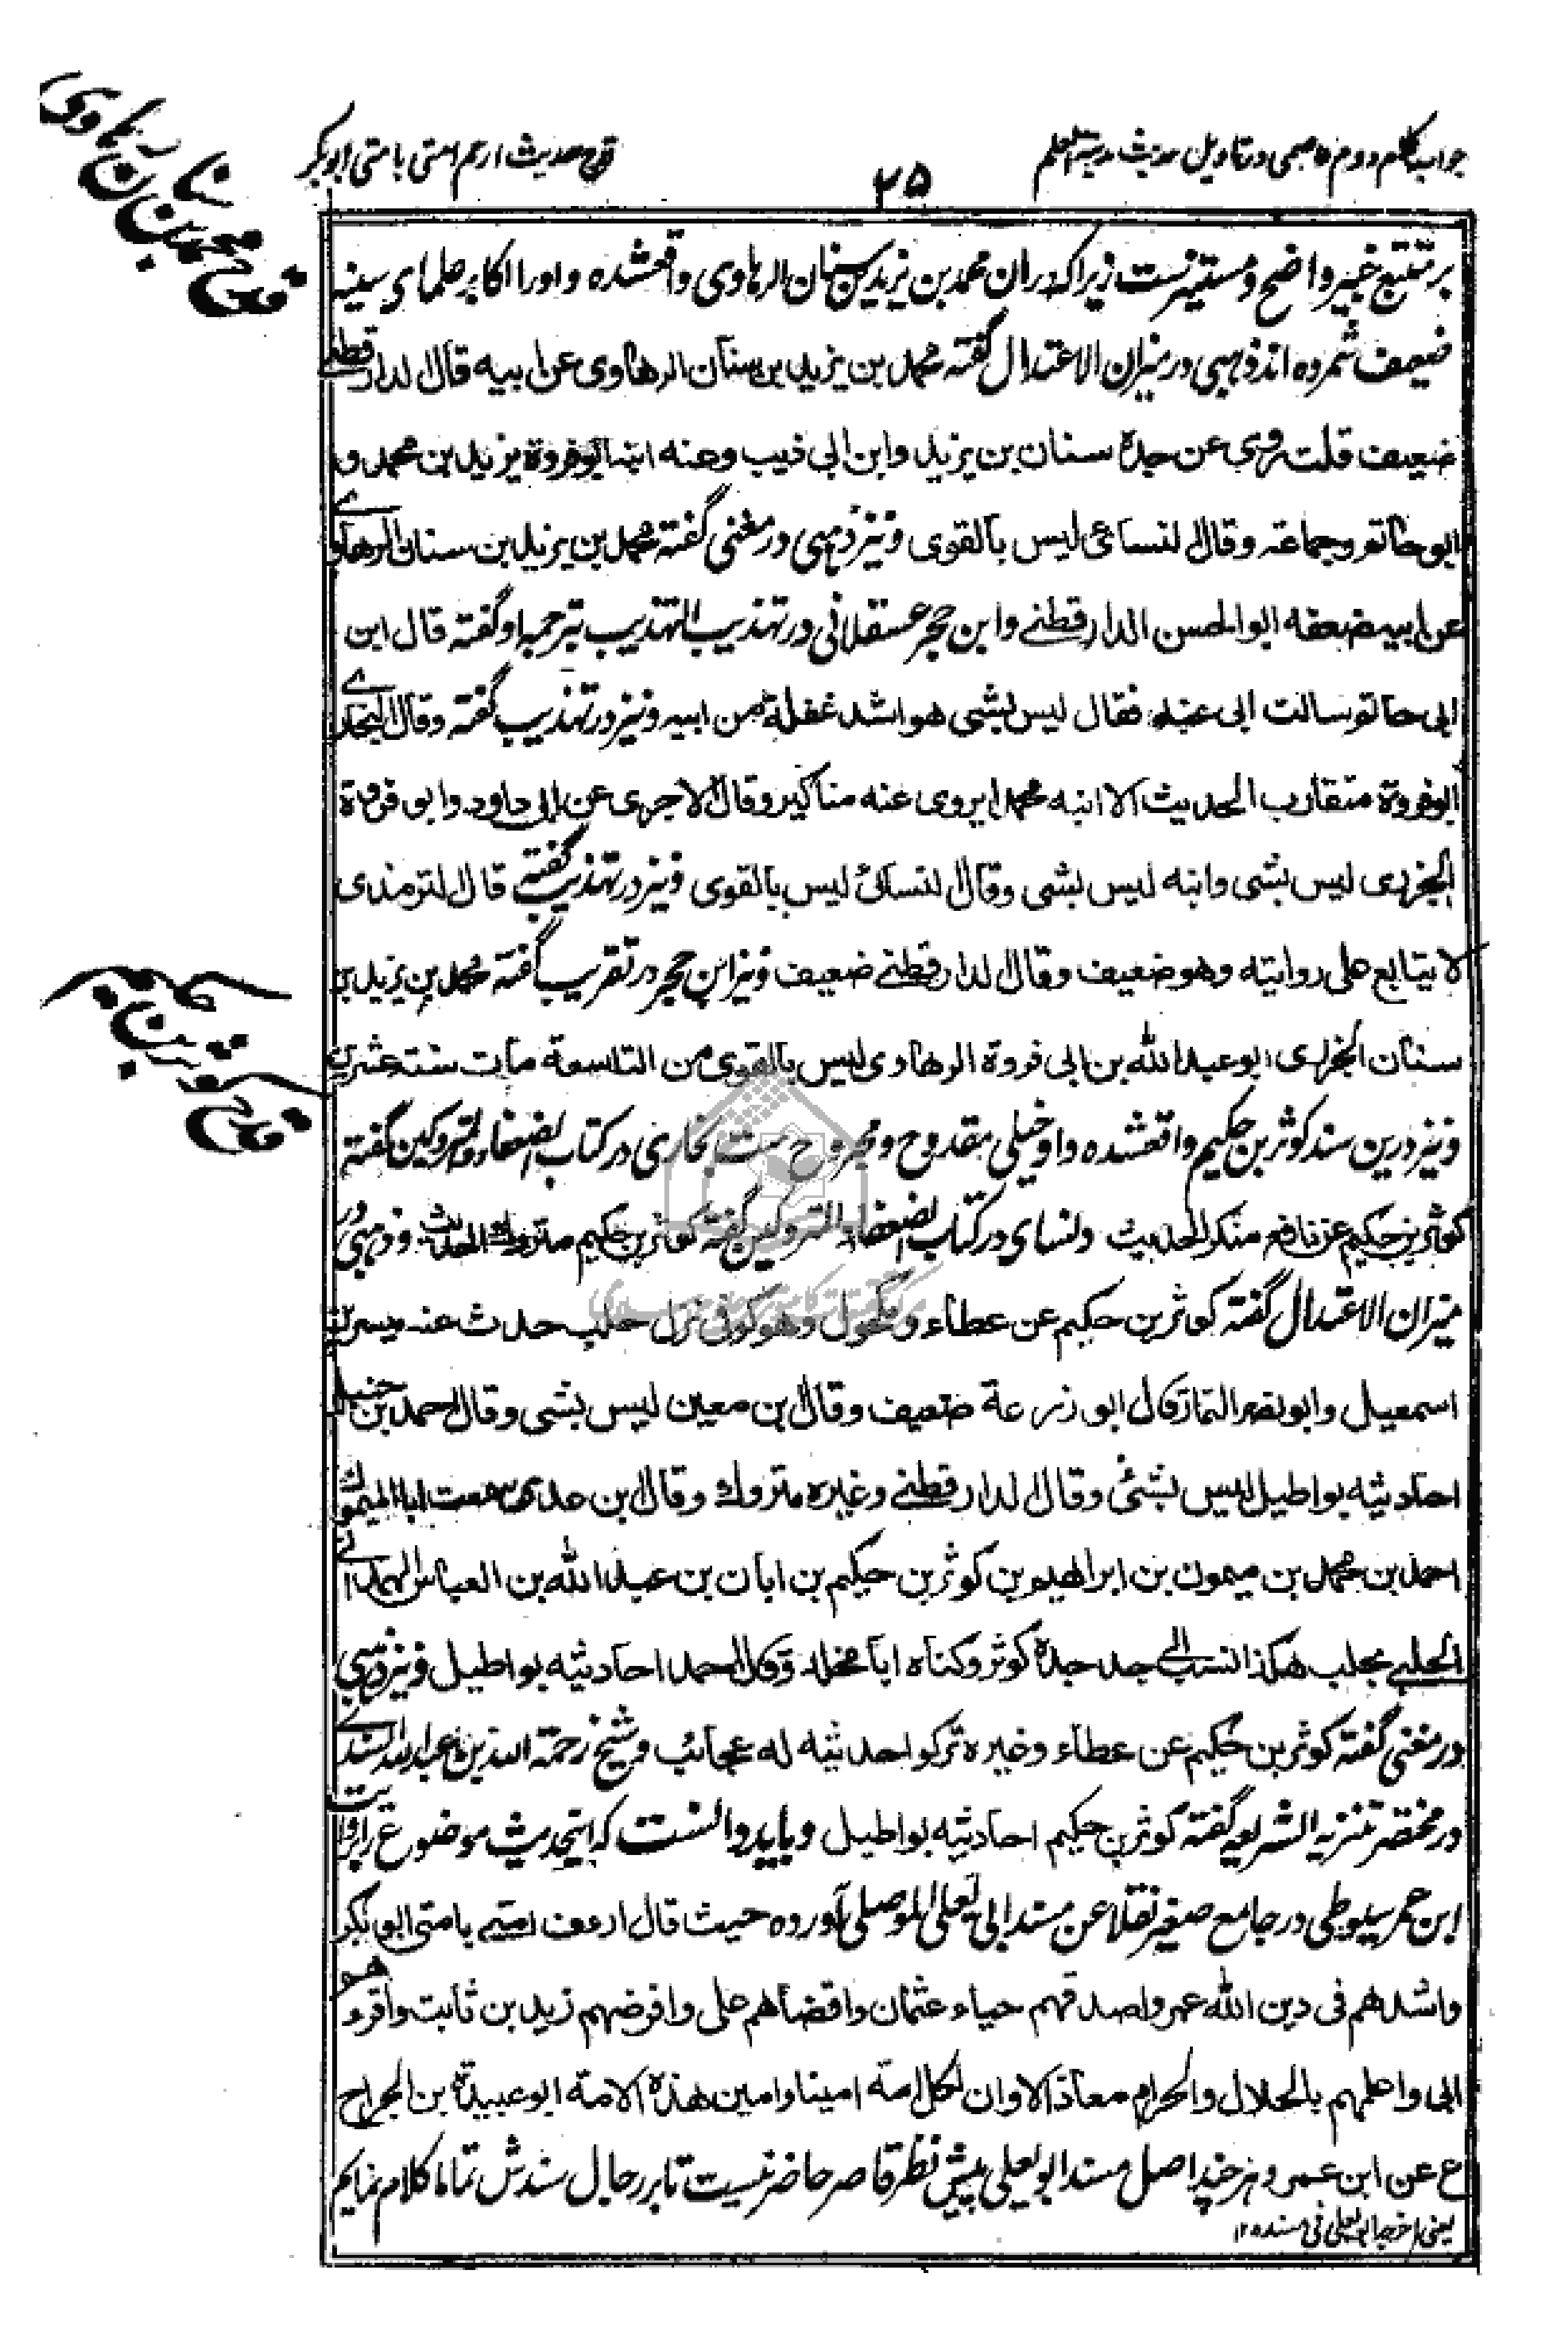 جواب کلام دوم عاصمی در تاویل حدیث مدینة العلم
۷۵
قدح حدیث ارحم امتی بامتی ابوبکر
قدح محمد بن سنان رهاوی
بر متتبع خبیر واضح و مستنیرست زیرا که دران محمد بن یزید بن سنان الرهاوی واقعشده و اورا اکابر علمای سنیه
ضعیف شمرده اند ذهبی در میزان الاعتدال گفته محمد بن یزید بن سنان الرهاوی عن ابیه قال الدارقطنے
ضعیف قلت روی عن جده سنان بن یزید وابن ابی ذیب وعنه ابنه ابو فروة یزید بن محمد و
ابو حاتم وجماعة وقال النساءی لیس بالقوی و نیز ذهبی در مغنی گفته محمد بن یزید بن سنان الرهاوے
عن ابیه ضعفه ابو الحسن الدارقطنے وابن حجر عسقلانی در تهذیب التهذیب بترجمه او گفته قال ابن
ابی حاتم سالت ابی عنه فقال لیس بشی هو اشد غفلة من ابیه و نیز در تهذیب گفته وقال البخارے
ابو فروة متقارب الحدیث الا ابنه محمدا یروی عنه مناکیر وقال الاجری عن ابی داود وابو فروة
الجزری لیس بشی وابنه لیس بشی وقال النسائی لیس بالقوی و نیز در تهذیب گفته قال الترمذی
لا یتابع علی روایته وهو ضعیف وقال الدارقطنے ضعیف و نیز ابن حجر در تقریب گفته محمد بن یزید بن
سنان الجزری ابو عبد الله بن ابی فروة الرهاوی لیس بالقوی من التاسعة مات سنة عشرین
قدح کوثر بن حکیم
و نیز درین سند کوثر بن حکیم واقعشده و او خیلی مقدوح و مجروح ست بخاری در کتاب الضعفاء والمتروکین گفته
کوثر بن حکیم عن نافع منکر الحدیث و نسای در کتاب الضعفاء والمتروکین گفته کوثر بن حکیم متروک الحدیث و ذهبی در
میزان الاعتدال گفته کوثر بن حکیم عن عطاء و مکحول وهو کوفی نزل حلب حدث عنه مبشر بن
اسمعیل وابو نصر التمار قال ابو زرعة ضعیف وقال ابن معین لیس بشی وقال احمد بن حنبل
احادیثه بواطیل لیس بشئ وقال الدارقطنے وغیره متروک وقال ابن عدی سمعت ابا المیمون
احمد بن محمد بن میمون بن ابراهیم بن کوثر بن حکیم بن ابان بن عبد الله بن العباس الهمدانے
الحلبے بحلب هکذا نسب الی جد جده کوثر وکناه ابا مخلد وقال احمد احادیثه بواطیل و نیز ذهبی
در مغنی گفته کوثر بن حکیم عن عطاء وغیره ترکوا حدیثه له عجائب و شیخ رحمة الله بن عبد الله السندے
در مختصر تنزیه الشریعه گفته کوثر بن حکیم احادیثه بواطیل و باید دانست که اینحدیث موضوع را بروایت
ابن عمر سیوطی در جامع صغیر نقلا عن مسند ابی یعلی الموصلی آورده حیث قال ارءف امتے بامتی ابو بکر
واشدهم فی دین الله عمر واصدقهم حیاء عثمان واقضاهم علی وافرضهم زید بن ثابت واقرءهم
ابی واعلمهم بالحلال والحرام معاذ الا وان لکل امة امینا وامین هذه الامة ابو عبیدة بن الجراح
ع عن ابن عمر و هر چند اصل مسند ابو یعلی پیش نظر قاصر حاضر نیست تا بر رجال سندش تماما کلام نمایم
یعنی اخرجه ابو یعلی فی مسنده ۱۲